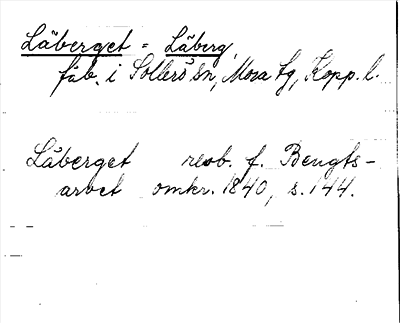 Läberget = Läberg,
fäb. i Sollerö sn, Mora tg, Kopp. l.
Läberget resb. f. Bengts-
arvet omkr. 1840, s. 144.